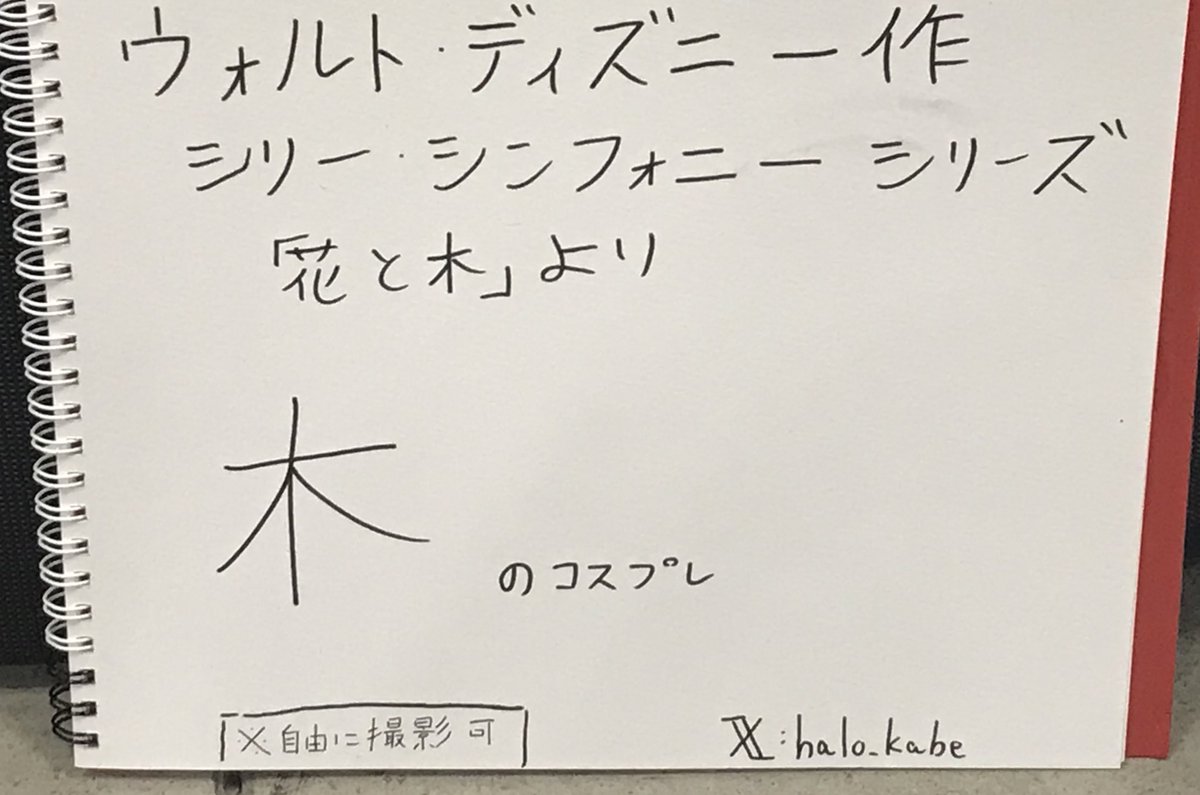 ウォルト・ディズニー作
シリー・シンフォニー シリーズ
「花と木」より
木 のコスプレ
※自由に撮影可
𝕏:halo_kabe